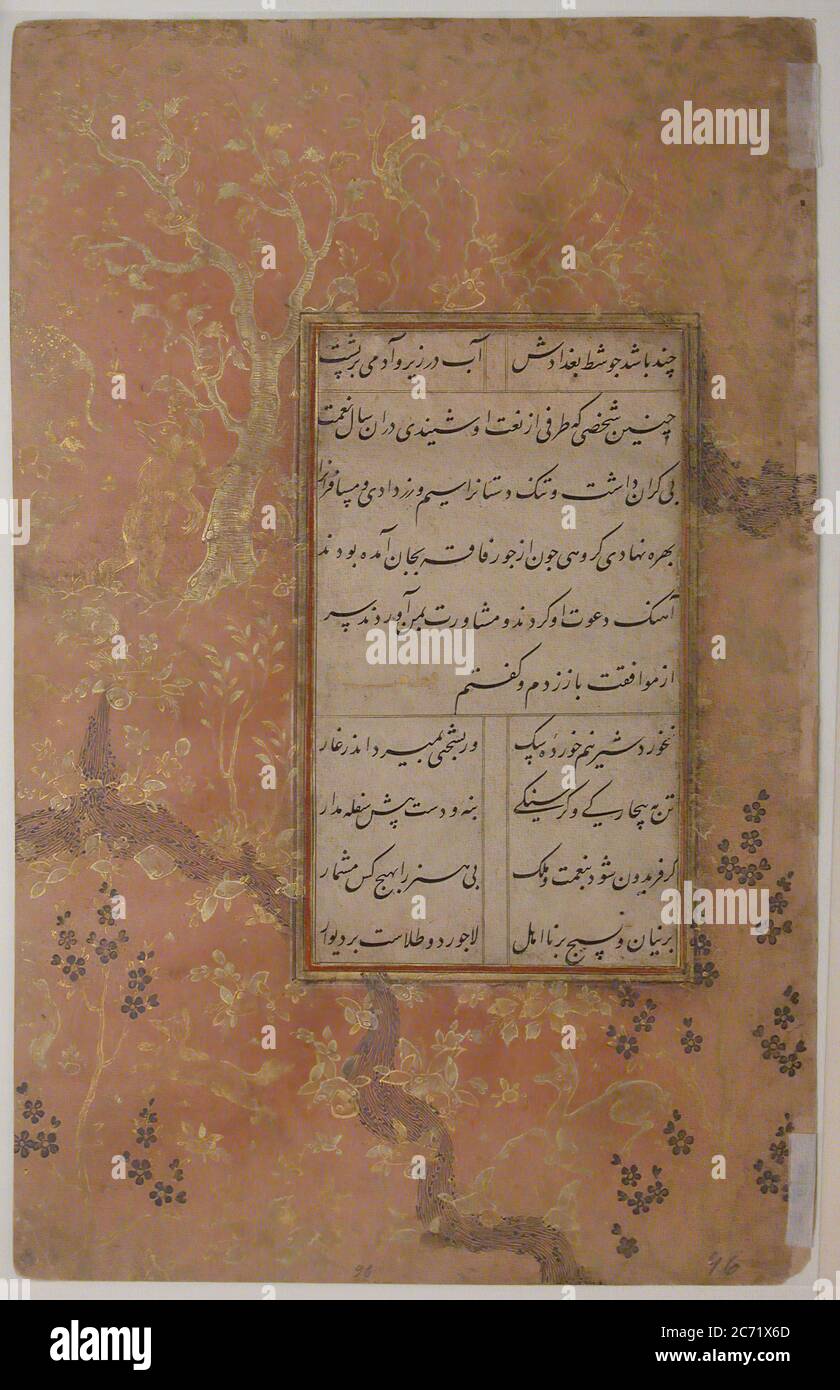 چند باشد جو شط بغدادش آب در زیر و آدمی بر پشت
چنین شخصی که طرفی از نعت او شنیدی دران سال نعمت
بی کران داشت و تنک دستانرا سیم و زر دادی و مسافرانرا
بهره نهادی کروهی جون از جور فاقه بجان آمده بودند
آهنک دعوت او کردند و مشاورت بمن آوردند سر
از موافقت باز زدم و کفتم
نخورد شیر نیم خورده سک ور بسختی بمیرد اندر غار
تن به بیچارکی و کرسنکی بنه و دست پیش سفله مدار
کر فریدون شود بنعمت و ملک بی هنر را بهیچ کس مشمار
برنیان و نسیج بر نااهل لاجورد و طلاست بر دیوار
96 96
alamy
Image ID: 2C71X6D
www.alamy.com